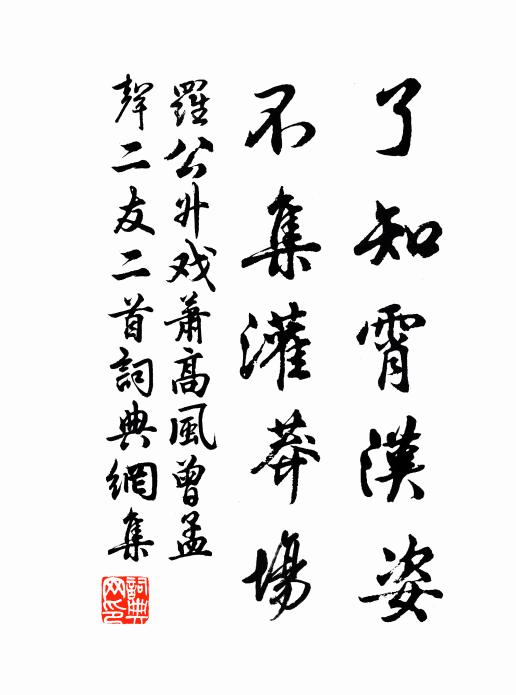 了知霄漢姿
不集灌莽場
羅公升戏蕭高風曾孟
聲二友二首詞典網集
詞典网印